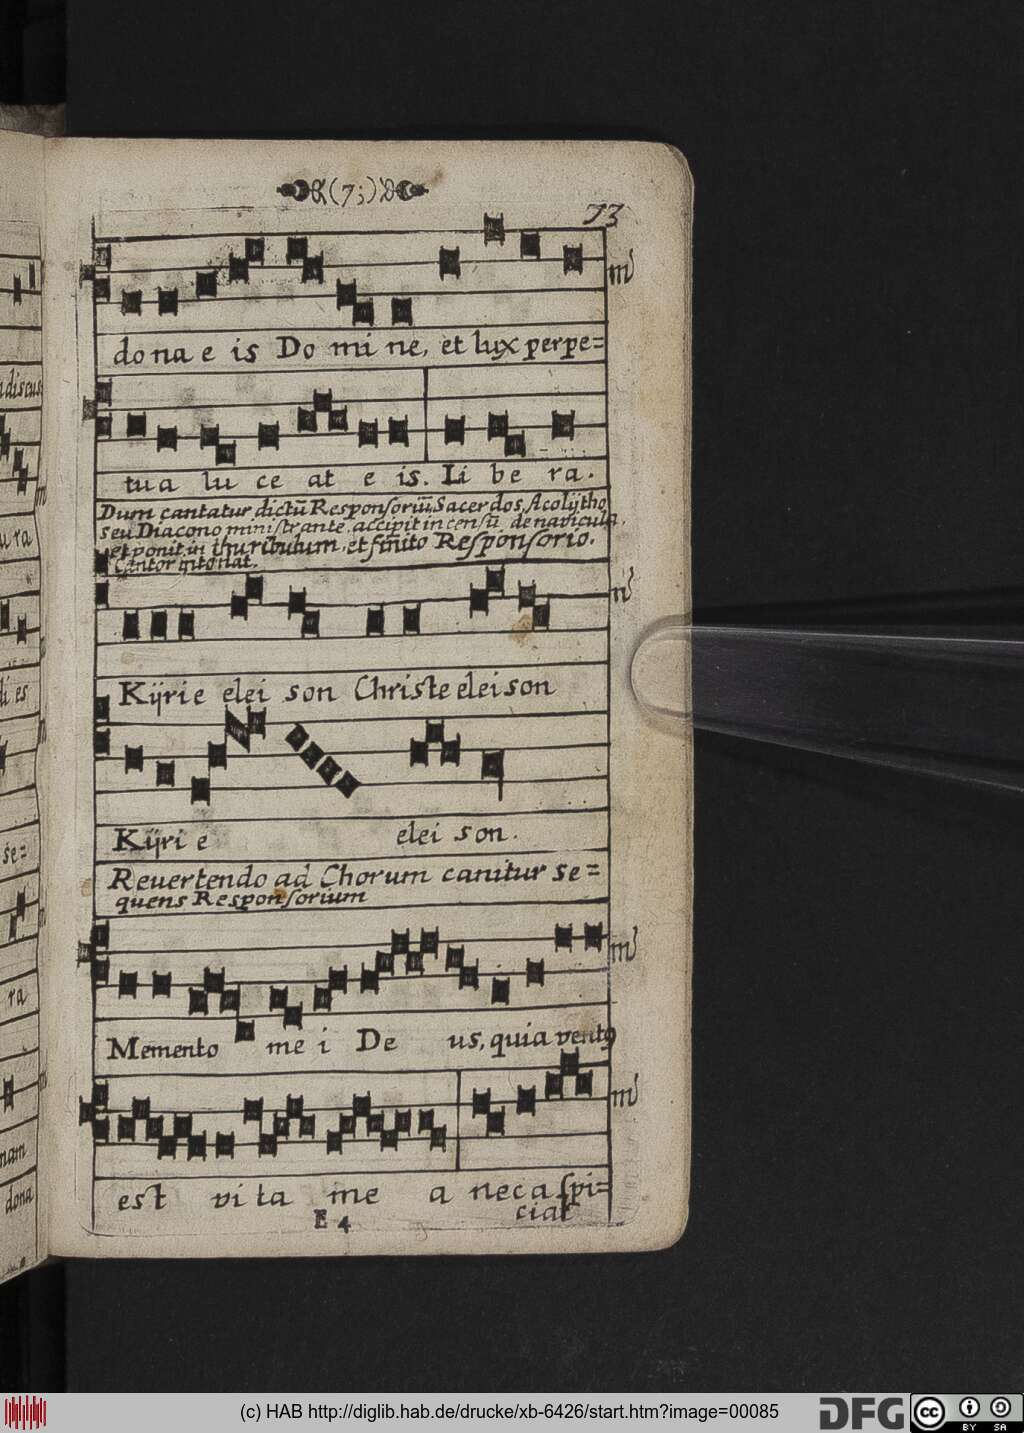 (73)
73
dona e is Do mi ne, et lux perpe=
tua lu ce at e is. Li be ra.
Dum cantatur dictũ Responsoriũ, Sacerdos, Acolÿtho
seu Diacono ministrante, accipit incensũ de navicula,
et ponit in thuribulum, et finito Responsorio.
Cantor intonat.
Kÿrie elei son Christe eleison
Kÿri e elei son.
Reuertendo ad Chorum canitur se=
quens Responsorium
Memento me i De us, quia ventꝰ
est vi ta me a nec aspi=
ciat
E 4
discus
ura
di es
se=
ra
nam
dona
(c) HAB http://diglib.hab.de/drucke/xb-6426/start.htm?image=00085
DFG
cc BY SA